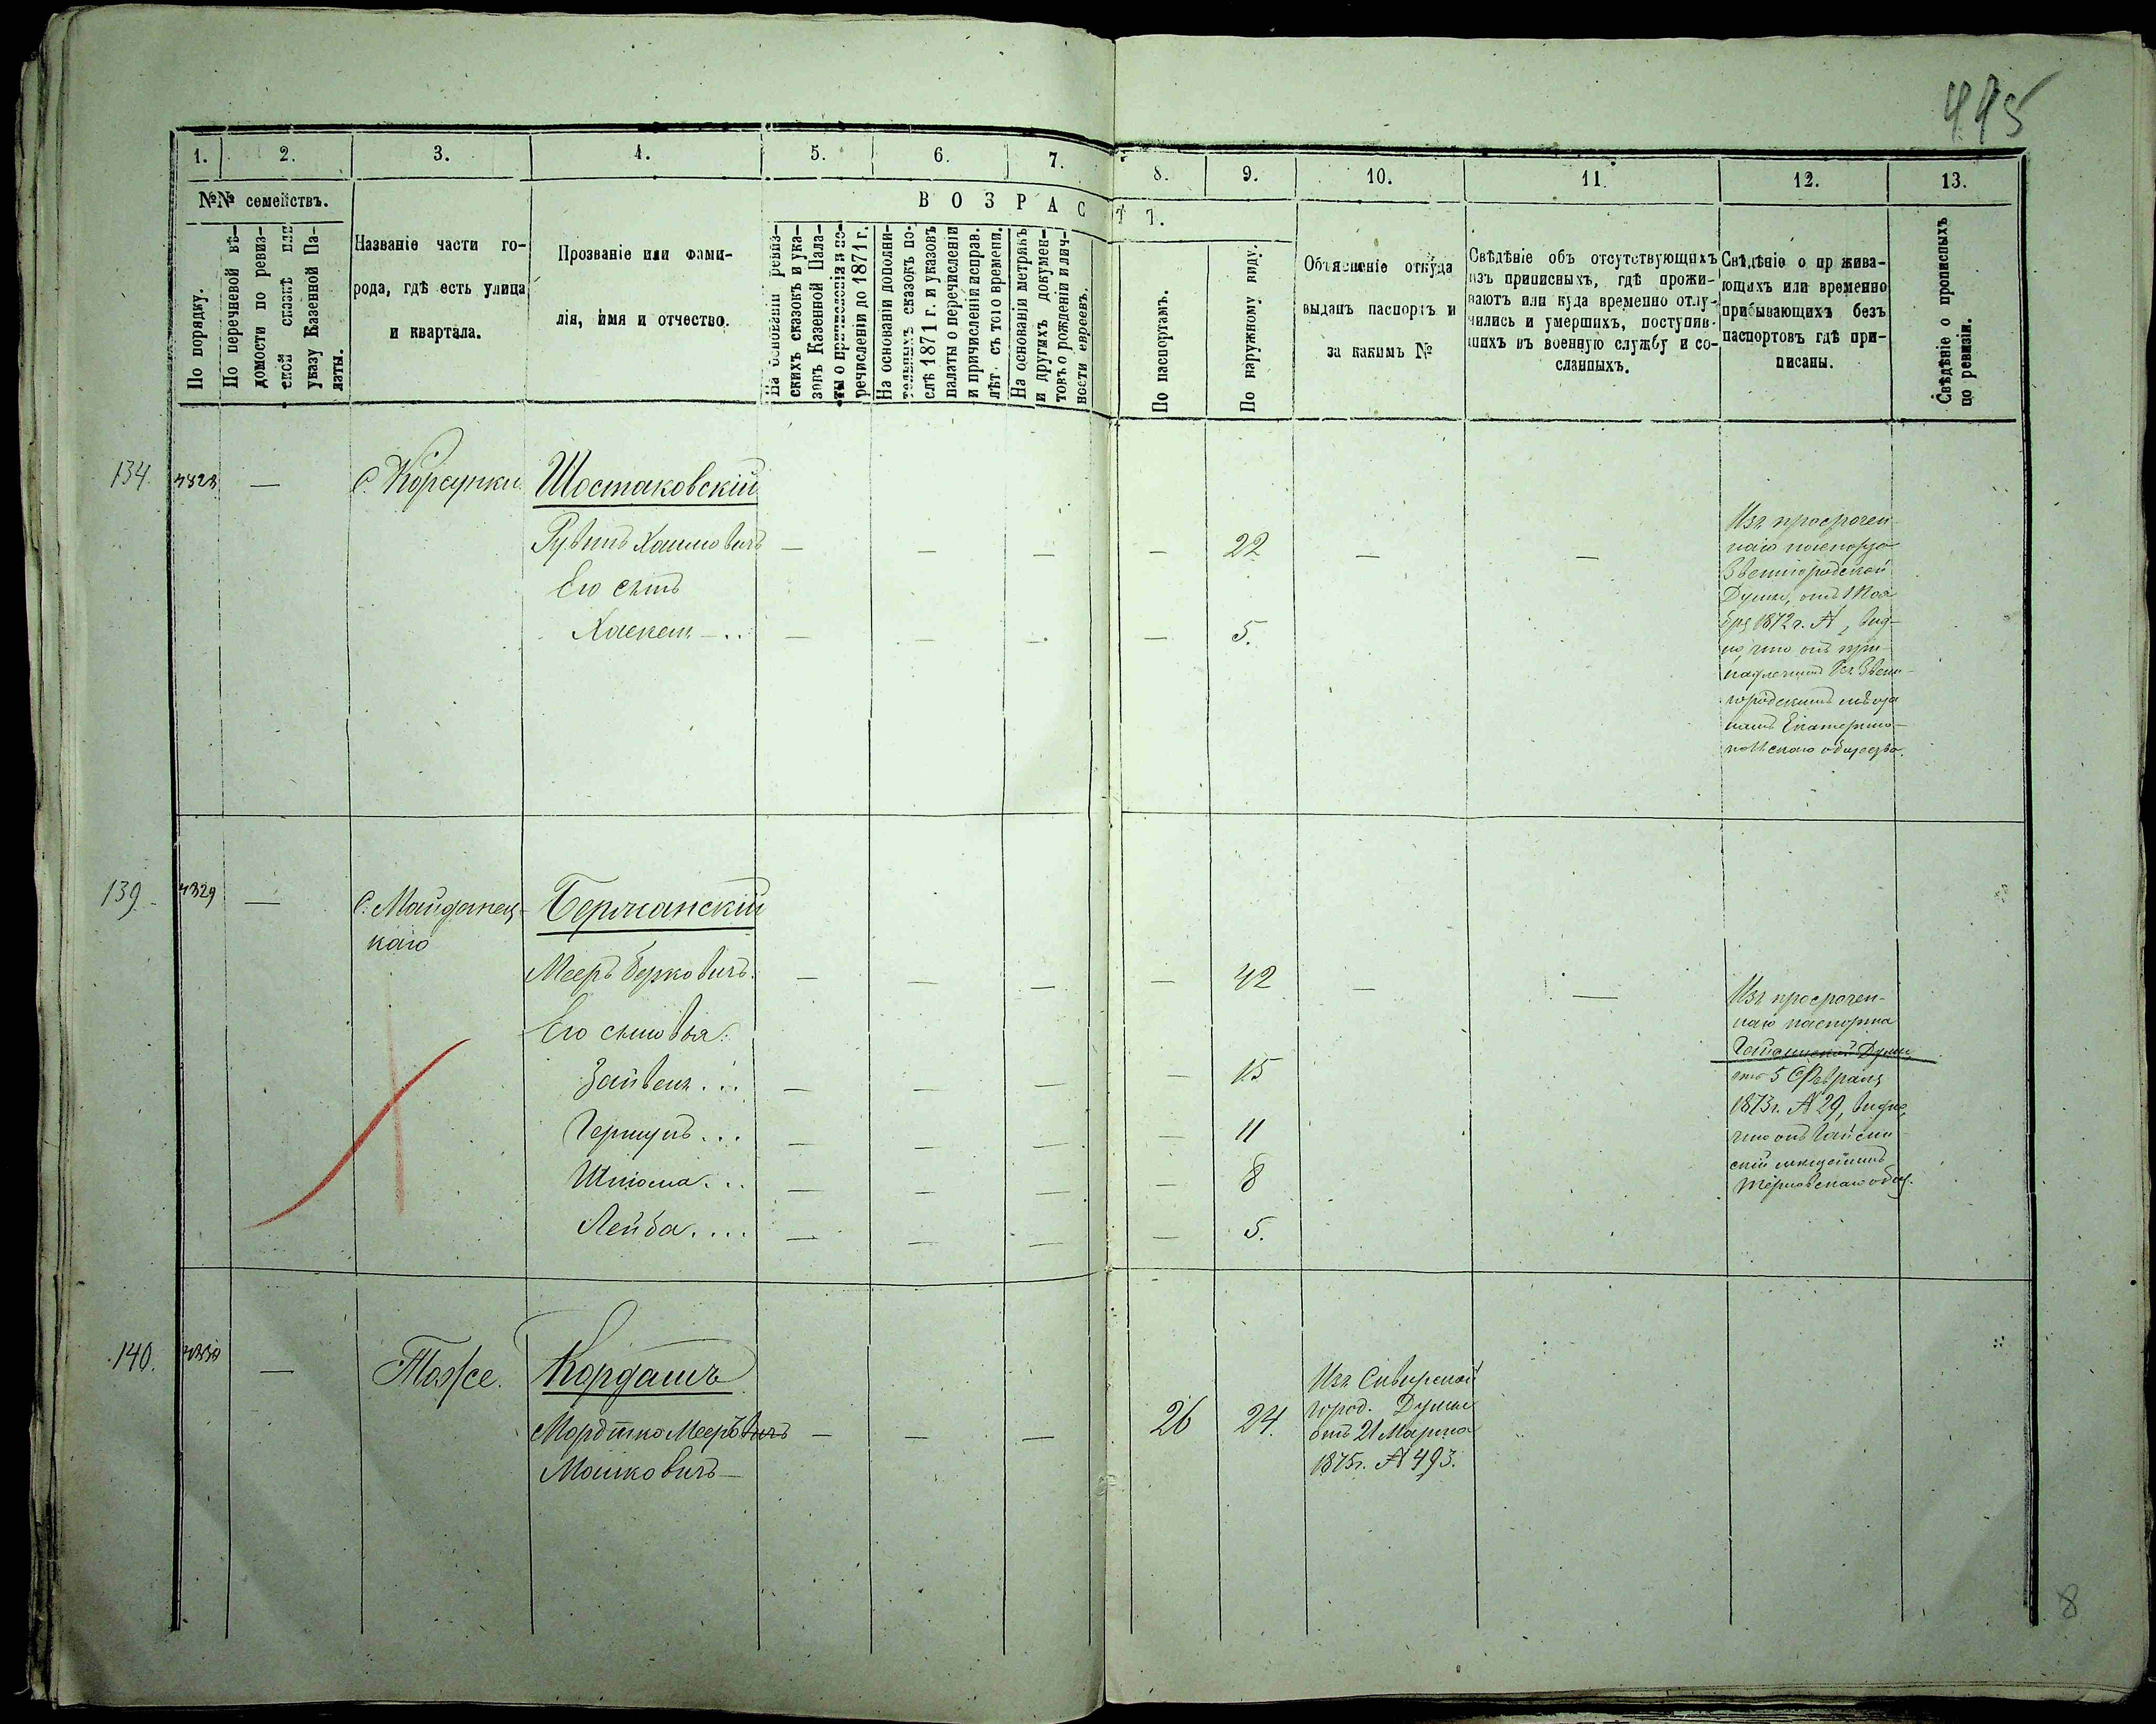 445
1. 2. 3. 4. 5. 6. 7. 8. 9. 10. 11. 12. 13.
№№ семействъ.
По порядку.
По перечневой вѣ-
домости по ревиз-
ской сказкѣ или
указу Казенной Па-
латы.
Названіе части го-
рода, гдѣ есть улица
и квартала.
Прозваніе или фами-
лія, имя и отчество.
ВОЗРАСТ
На основаніи ревиз-
скихъ сказокъ и ука-
зовъ Казенной Пала-
ты о причисленіи и пе-
речисленіи до 1871 г.
На основаніи дополни-
тельныхъ сказокъ по-
слѣ 1871 г. и указовъ
палаты о перечисленіи
и причисленіи исправ.
лѣт. съ того времени.
На основаніи метрикъ
и другихъ докумен-
товъ о рожденіи и лич-
ности евреевъ.
По паспортамъ.
По наружному виду.
Объясненіе откуда
выданъ паспортъ и
за какимъ №
Свѣдѣніе объ отсутствующихъ
изъ приписныхъ, гдѣ прожи-
ваютъ или куда временно отлу-
чились и умершихъ, поступив-
шихъ въ военную службу и со-
сланныхъ.
Свѣдѣніе о прожива-
ющихъ или временно
прибывающихъ безъ
паспортовъ гдѣ при-
писаны.
Свѣдѣніе о прописныхъ
по ревизіи.
134. 4328 — С. Корсунки Шостаковскій
Рувинъ Хаимовичъ — — — — 22 — —
Его сынъ
Хаскель — — — — 5.
Изъ просрочен-
наго паспорта
Звенигородской
Думы, отъ 1 Ноя-
бря 1872 г. №, вид-
но, что онъ при-
надлежитъ къ Звени-
городскимъ мѣща-
намъ Екатерино-
польскаго общества.
139. 4329 — С. Майданец-
каго
Бершанскій
Мееръ Берковичъ. — — — — 42 — —
Его сыновья:
Зайвель... — — — — 15
Гершунъ... — — — — 11
Шлиома... — — — — 8
Лейба.... — — — — 5.
Изъ просрочен-
наго паспорта
Гайсинской Думы
отъ 5 Февраля
1873 г. № 29, видно,
что онъ Гайсин-
скій мѣщанинъ
Терновскаго общ.
140. 4330 — Тоже. Кордашъ
Мордко Мееровичъ — — — 26 24.
Мошковичъ
Изъ Сквирской
город. Думы
отъ 21 Марта
1875 г. № 493.
8